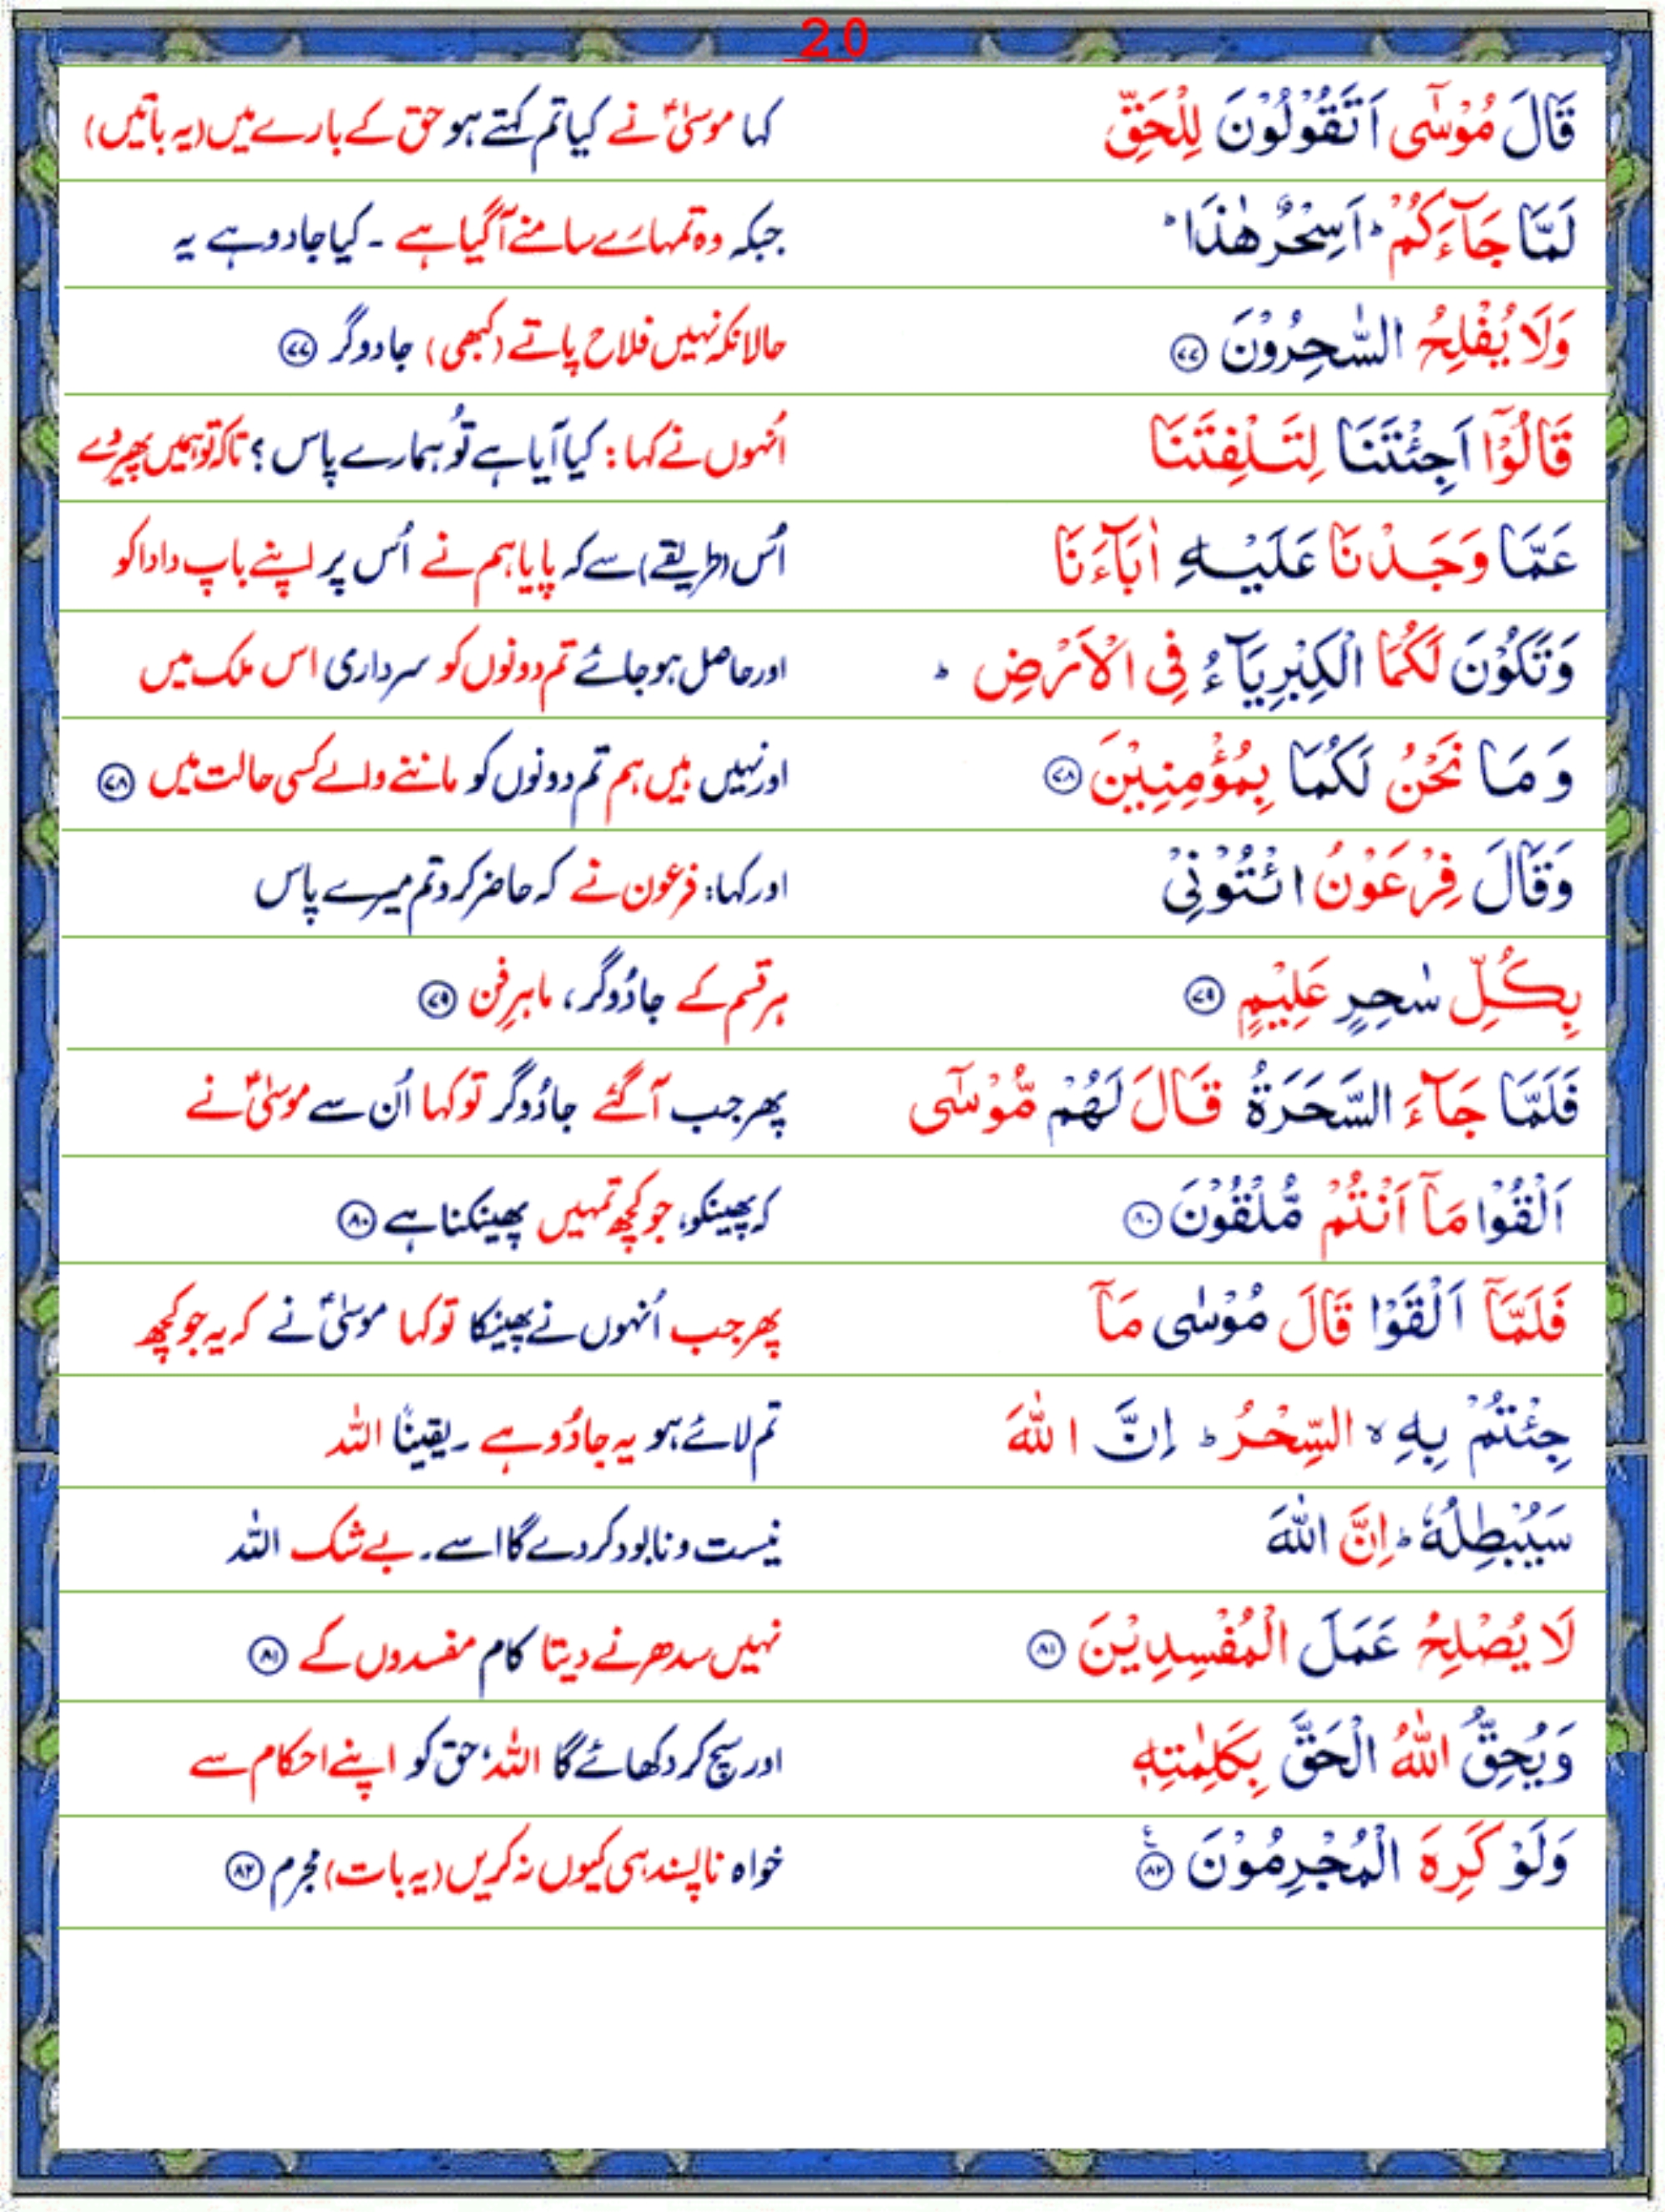 20
قَالَ مُوْسٰۤى اَتَقُوْلُوْنَ لِلْحَقِّ
کہا موسیٰؑ نے کیا تم کہتے ہو حق کے بارے میں (یہ باتیں)
لَمَّا جَآءَكُمْ ؕ اَسِحْرٌ هٰذَا ؕ
جبکہ وہ تمہارے سامنے آگیا ہے ۔ کیا جادو ہے یہ
وَلَا يُفْلِحُ السّٰحِرُوْنَ ۷۷
حالانکہ نہیں فلاح پاتے (کبھی) جادوگر ۷۷
قَالُوْۤا اَجِئْتَنَا لِتَلْفِتَنَا
اُنہوں نے کہا : کیا آیا ہے تُو ہمارے پاس ؟ تاکہ تو ہمیں پھیر دے
عَمَّا وَجَدْنَا عَلَيْهِ اٰبَآءَنَا
اُس (طریقے) سے کہ پایا ہم نے اُس پر اپنے باپ دادا کو
وَتَكُوْنَ لَكُمَا الْكِبْرِيَآءُ فِى الْاَرْضِ ؕ
اور حاصل ہو جائے تم دونوں کو سرداری اس ملک میں
وَمَا نَحْنُ لَكُمَا بِمُؤْمِنِيْنَ ۷۸
اور نہیں ہیں ہم تم دونوں کو ماننے والے کسی حالت میں ۷۸
وَقَالَ فِرْعَوْنُ ائْتُوْنِىْ
اور کہا: فرعون نے کہ حاضر کرو تم میرے پاس
بِكُلِّ سٰحِرٍ عَلِيْمٍ ۷۹
ہر قسم کے جادُوگر، ماہرِ فن ۷۹
فَلَمَّا جَآءَ السَّحَرَةُ قَالَ لَهُمْ مُّوْسٰۤى
پھر جب آگئے جادُوگر تو کہا اُن سے موسیٰؑ نے
اَلْقُوْا مَاۤ اَنْتُمْ مُّلْقُوْنَ ۸۰
کہ پھینکو، جو کچھ تمہیں پھینکنا ہے ۸۰
فَلَمَّاۤ اَلْقَوْا قَالَ مُوْسٰى مَاۤ
پھر جب اُنہوں نے پھینکا تو کہا موسیٰؑ نے کہ یہ جو کچھ
جِئْتُمْ بِهِ ۙ السِّحْرُ ؕ اِنَّ اللّٰهَ
تم لائے ہو یہ جادُو ہے ۔ یقیناً اللہ
سَيُبْطِلُهٗ ؕ اِنَّ اللّٰهَ
نیست و نابود کر دے گا اسے ۔ بے شک اللہ
لَا يُصْلِحُ عَمَلَ الْمُفْسِدِيْنَ ۸۱
نہیں سدھرنے دیتا کام مفسدوں کے ۸۱
وَيُحِقُّ اللّٰهُ الْحَقَّ بِكَلِمٰتِهٖ
اور سچ کر دکھائے گا اللہ، حق کو اپنے احکام سے
وَلَوْ كَرِهَ الْمُجْرِمُوْنَ ۸۲
خواہ ناپسند ہی کیوں نہ کریں (یہ بات) مجرم ۸۲